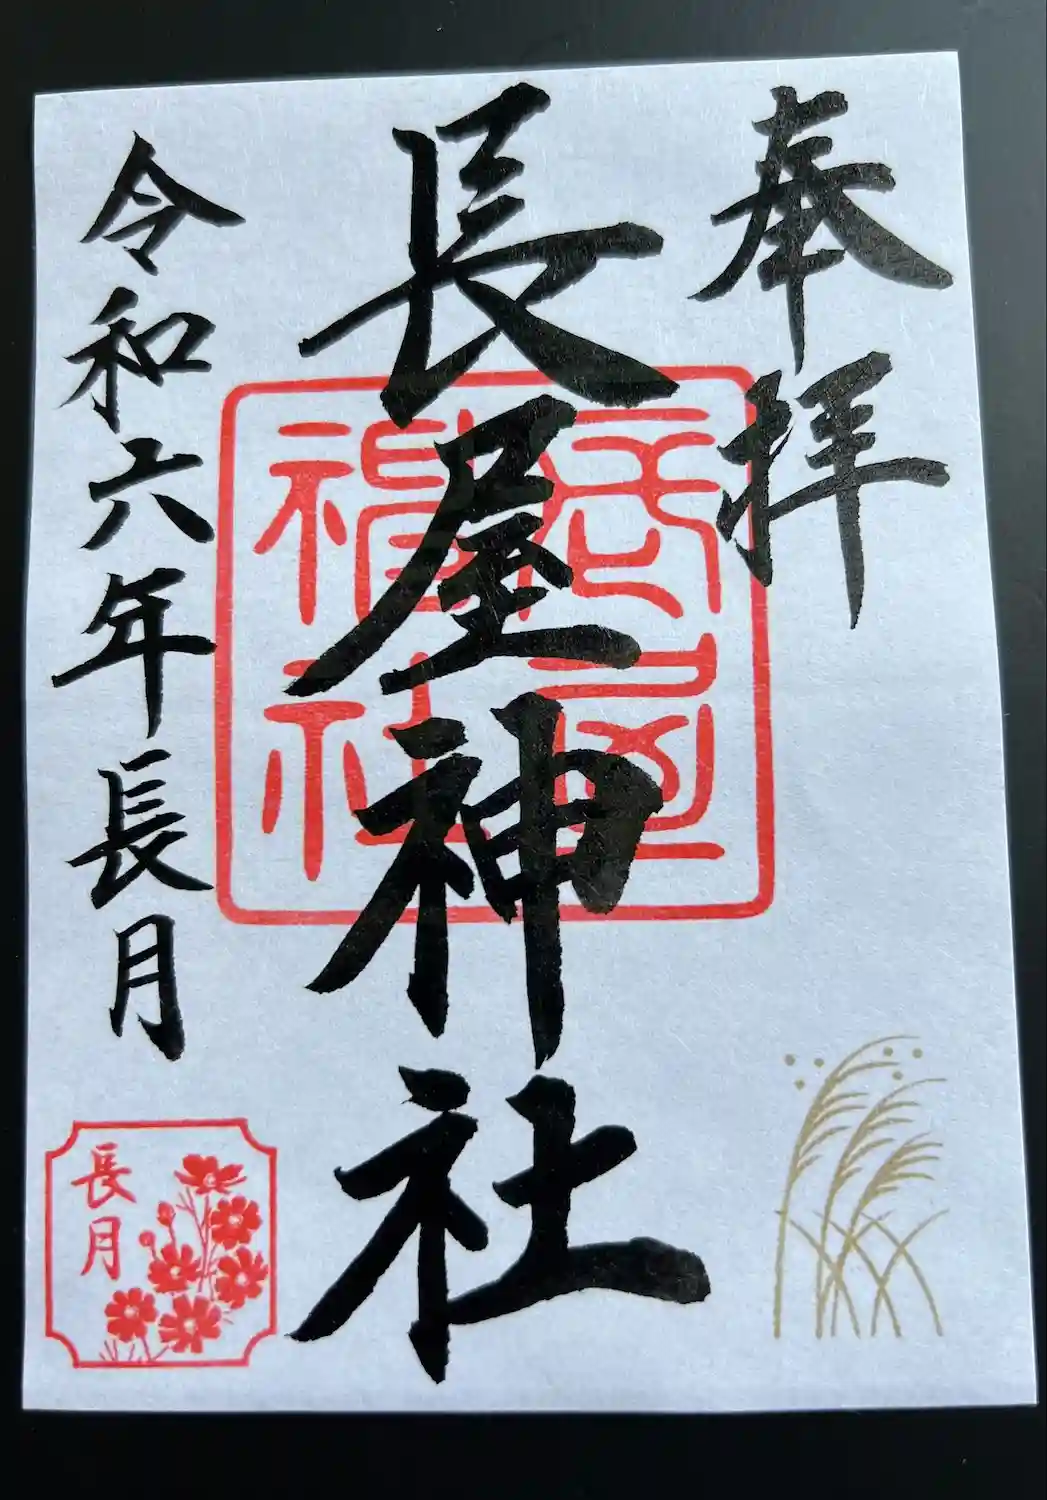 奉拝
長屋神社
長屋
神社
令和六年長月
長月